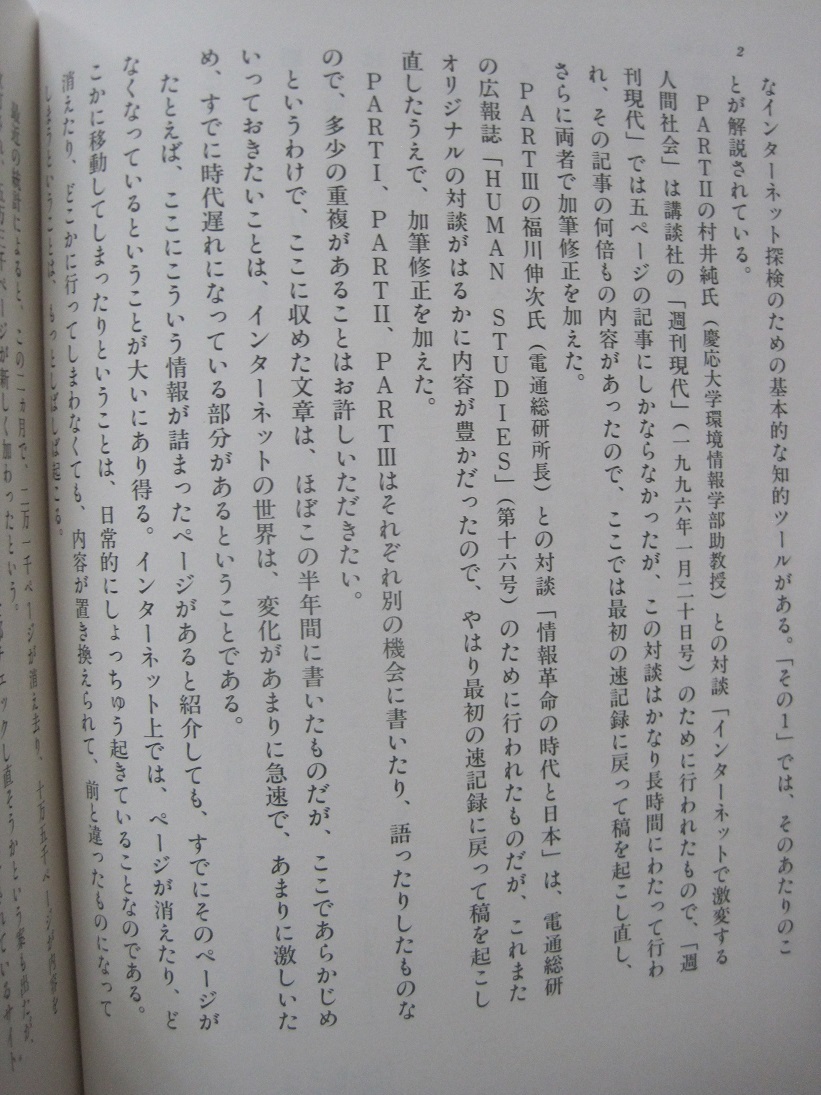 2
なインターネット探検のための基本的な知的ツールがある。「その1」では、そのあたりのこ
とが解説されている。
PARTⅡの村井純氏（慶応大学環境情報学部助教授）との対談「インターネットで激変する
人間社会」は講談社の「週刊現代」（一九九六年一月二十日号）のために行われたもので、「週
刊現代」では五ページの記事にしかならなかったが、この対談はかなり長時間にわたって行わ
れ、その記事の何倍もの内容があったので、ここでは最初の速記録に戻って稿を起こし直し、
さらに両者で加筆修正を加えた。
PARTⅢの福川伸次氏（電通総研所長）との対談「情報革命の時代と日本」は、電通総研
の広報誌「HUMAN STUDIES」（第十六号）のために行われたものだが、これまた
オリジナルの対談がはるかに内容が豊かだったので、やはり最初の速記録に戻って稿を起こし
直したうえで、加筆修正を加えた。
PARTⅠ、PARTⅡ、PARTⅢはそれぞれ別の機会に書いたり、語ったりしたものな
ので、多少の重複があることはお許しいただきたい。
というわけで、ここに収めた文章は、ほぼこの半年間に書いたものだが、ここであらかじめ
いっておきたいことは、インターネットの世界は、変化があまりに急速で、あまりに激しいた
め、すでに時代遅れになっている部分があるということである。
たとえば、ここにこういう情報が詰まったページがあると紹介しても、すでにそのページが
なくなっているということが大いにあり得る。インターネット上では、ページが消えたり、ど
こかに移動してしまったりということは、日常的にしょっちゅう起きていることなのである。
消えたり、どこかに行ってしまわなくても、内容が置き換えられて、前と違ったものになって
しまうということは、もっとしばしば起こる。
最近の統計によると、この二ヵ月で、二万一千ページが消え去り、十万五千ページが内容を
ページが新しく加わったという。
チェックし直そうかという案も出たが、